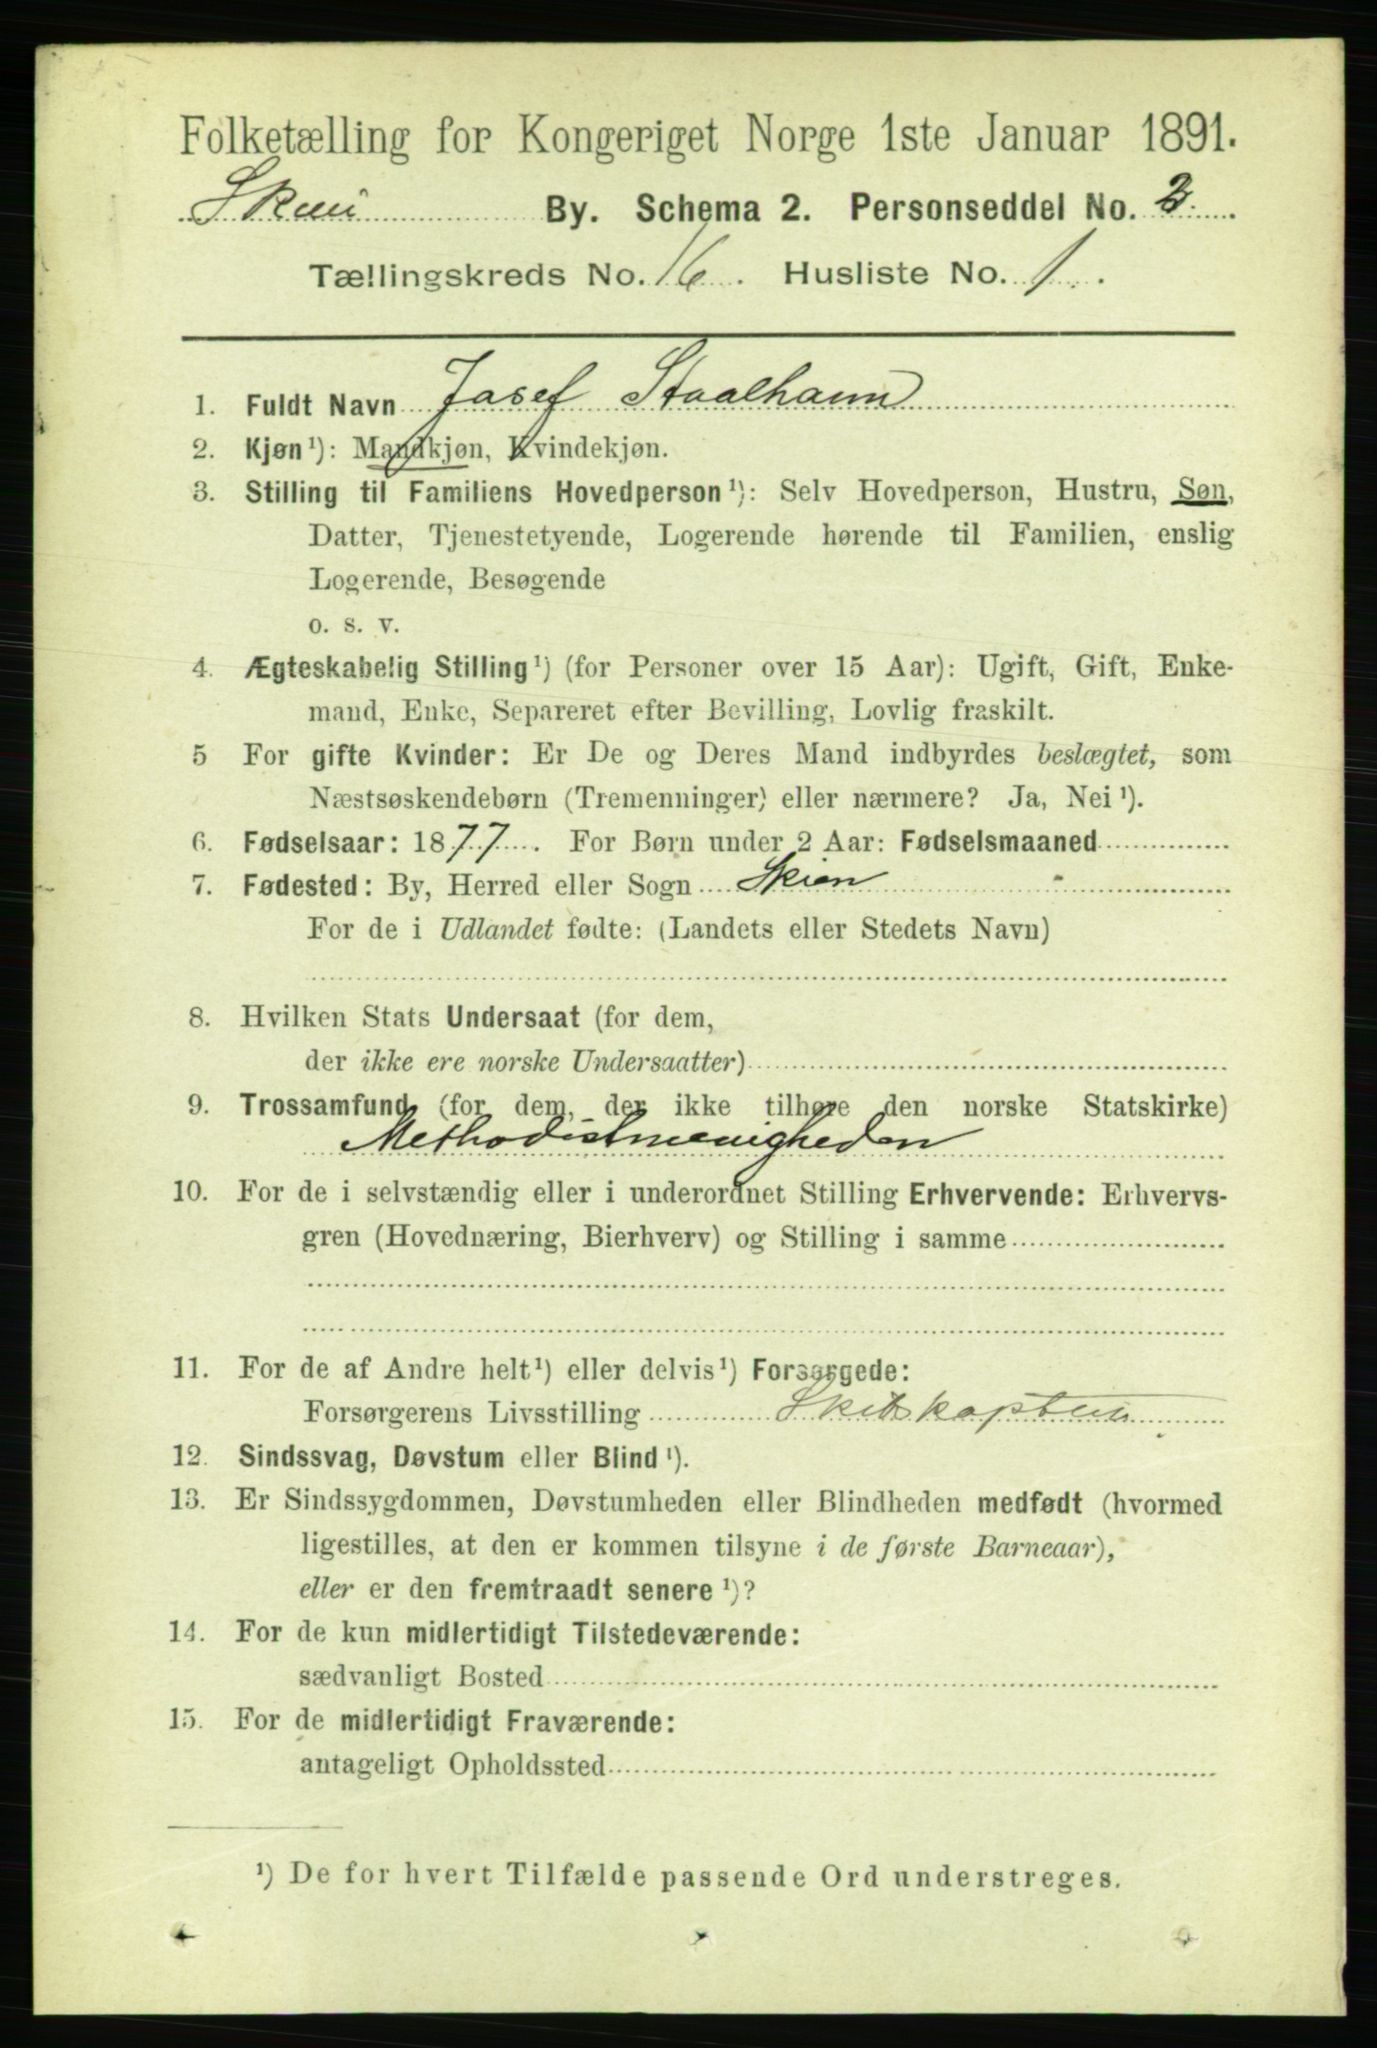 Folketælling for Kongeriget Norge 1ste Januar 1891.
Skien By. Schema 2. Personseddel No. 3.
Tællingskreds No. 16. Husliste No. 1.
1. Fuldt Navn Josef Staalhann
2. Kjøn¹): Mandkjøn, Kvindekjøn.
3. Stilling til Familiens Hovedperson¹): Selv Hovedperson, Hustru, Søn,
Datter, Tjenestetyende, Logerende hørende til Familien, enslig
Logerende, Besøgende
o. s. v.
4. Ægteskabelig Stilling¹) (for Personer over 15 Aar): Ugift, Gift, Enke-
mand, Enke, Separeret efter Bevilling, Lovlig fraskilt.
5 For gifte Kvinder: Er De og Deres Mand indbyrdes beslægtet, som
Næstsøskendebørn (Tremenninger) eller nærmere? Ja, Nei¹).
6. Fødselsaar: 1877. For Børn under 2 Aar: Fødselsmaaned
7. Fødested: By, Herred eller Sogn Skien
For de i Udlandet fødte: (Landets eller Stedets Navn)
8. Hvilken Stats Undersaat (for dem,
der ikke ere norske Undersaatter)
9. Trossamfund (for dem, der ikke tilhøre den norske Statskirke)
Methodistmenigheden
10. For de i selvstændig eller i underordnet Stilling Erhvervende: Erhvervs-
gren (Hovednæring, Bierhverv) og Stilling i samme
11. For de af Andre helt¹) eller delvis¹) Forsørgede:
Forsørgerens Livsstilling
12. Sindssvag, Døvstum eller Blind¹).
13. Er Sindssygdommen, Døvstumheden eller Blindheden medfødt (hvormed
ligestilles, at den er kommen tilsyne i de første Barneaar),
eller er den fremtraadt senere¹)?
14. For de kun midlertidigt Tilstedeværende:
sædvanligt Bosted
15. For de midlertidigt Fraværende:
antageligt Opholdssted
¹) De for hvert Tilfælde passende Ord understreges.